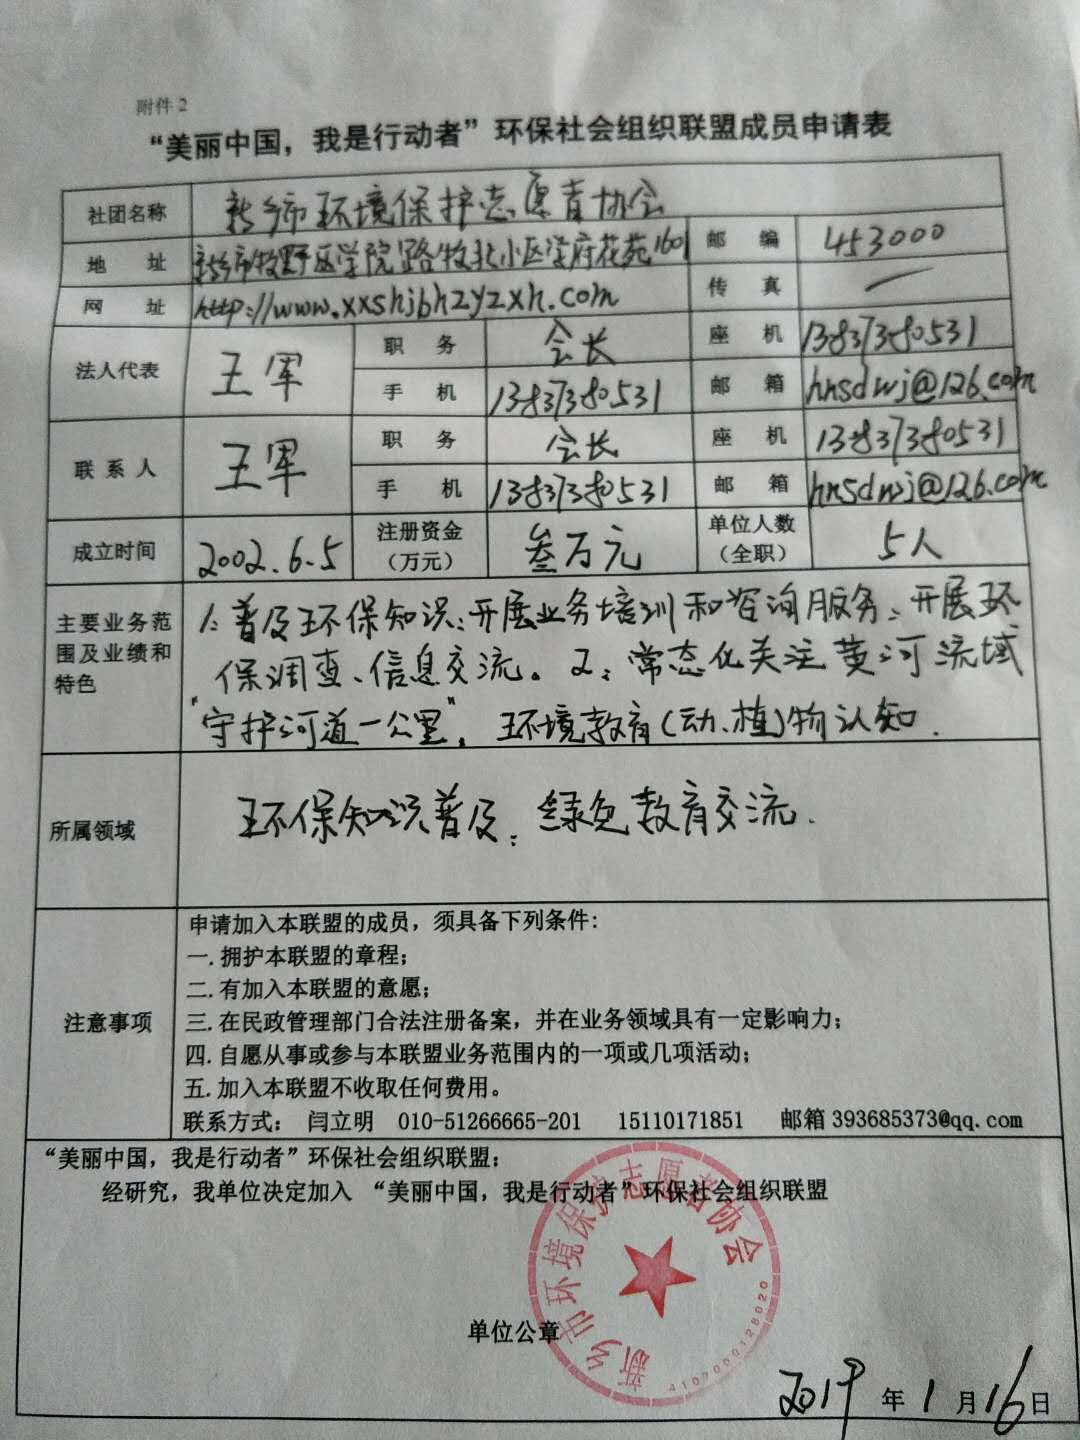 附件 2
“美丽中国，我是行动者”环保社会组织联盟成员申请表
社团名称 新乡市环境保护志愿者协会
地 址 新乡市牧野区学院路牧北小区学府花苑1601 邮 编 453000
网 址 http://www.xxshjbhzyzxh.com 传 真 —
法人代表 王军 职 务 会长 座 机 13837380531
手 机 13837380531 邮 箱 hnsdwj@126.com
联 系 人 王军 职 务 会长 座 机 13837380531
手 机 13837380531 邮 箱 hnsdwj@126.com
成立时间 2002.6.5 注册资金（万元） 叁万元 单位人数（全职） 5人
主要业务范围及业绩和特色
1：普及环保知识；开展业务培训和咨询服务、开展环
保调查、信息交流。2：常态化关注黄河流域
“守护河道一公里”，环境教育(动、植)物认知.
所属领域 环保知识普及；绿色教育交流.
注意事项
申请加入本联盟的成员，须具备下列条件：
一. 拥护本联盟的章程；
二. 有加入本联盟的意愿；
三. 在民政管理部门合法注册备案，并在业务领域具有一定影响力；
四. 自愿从事或参与本联盟业务范围内的一项或几项活动；
五. 加入本联盟不收取任何费用。
联系方式： 闫立明 010-51266665-201 15110171851 邮箱 393685373@qq.com
“美丽中国，我是行动者”环保社会组织联盟：
经研究，我单位决定加入 “美丽中国，我是行动者”环保社会组织联盟
新乡市环境保护志愿者协会
4107000128020
单位公章
2019 年 1 月 16 日